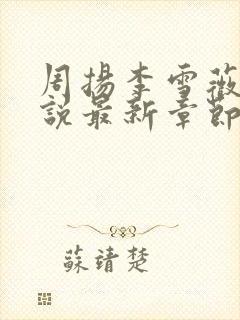 周揚李雪薇
說最新章節
蘇靖楚